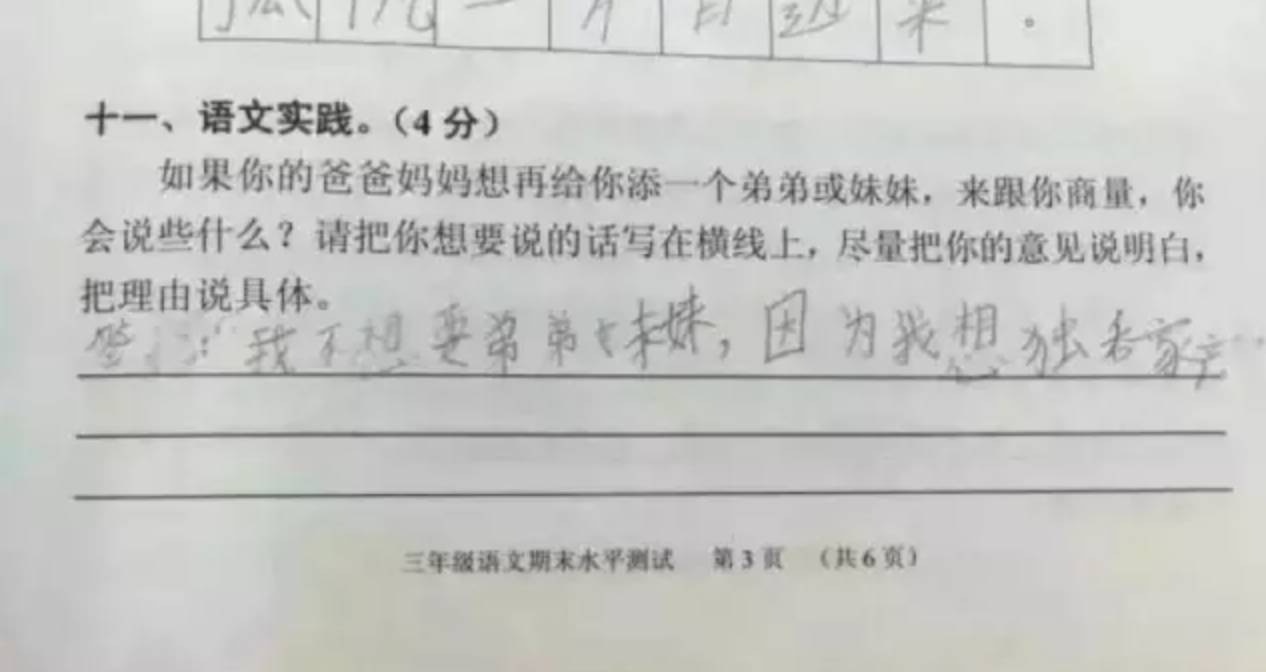 一 月 日 越 来 。
十一、语文实践。（4 分）
如果你的爸爸妈妈想再给你添一个弟弟或妹妹，来跟你商量，你
会说些什么？请把你想要说的话写在横线上，尽量把你的意见说明白，
把理由说具体。
答 我不想要弟弟妹妹，因为我想独吞家产
三年级语文期末水平测试 第 3 页 （共 6 页）